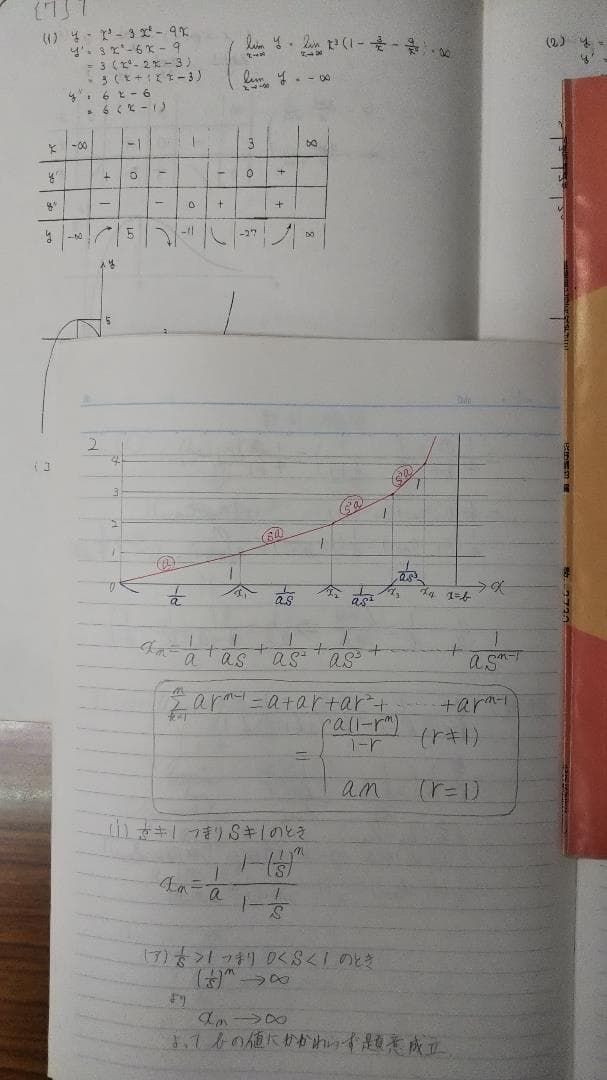 [75]
(1) y = x³ - 3x² - 9x
y' = 3x² - 6x - 9
= 3(x² - 2x - 3)
= 3(x+1)(x-3)
y'' = 6x - 6
= 6(x-1)
lim x→∞ y = lim x→∞ x³(1 - 3/x - 9/x²) = ∞
lim x→-∞ y = -∞
(2) y =
y' =
x -∞ -1 1 3 ∞
y' + 0 - - 0 +
y'' - - 0 + +
y -∞ 5 -11 -27 ∞
y
5
(3
No.
Date
2
4
3
2
1
0
a
sa
s²a
1 1 1 1
1/a x₁ 1/as x₂ 1/as² x₃ 1/as³ x₄ x=b x
xₙ = 1/a + 1/as + 1/as² + 1/as³ + ⋯⋯ + 1/asⁿ⁻¹
Σ arⁿ⁻¹ = a + ar + ar² + ⋯⋯ + arⁿ⁻¹
= { a(1-rⁿ)/(1-r) (r≠1)
an (r=1)
(i) 1/s ≠ 1 つまり s≠1のとき
xₙ = 1/a · (1-(1/s)ⁿ)/(1-1/s)
(ア) 1/s > 1 つまり 0<s<1 のとき
(1/s)ⁿ → ∞
より
xₙ → ∞
よって bの値にかかわらず題意成立